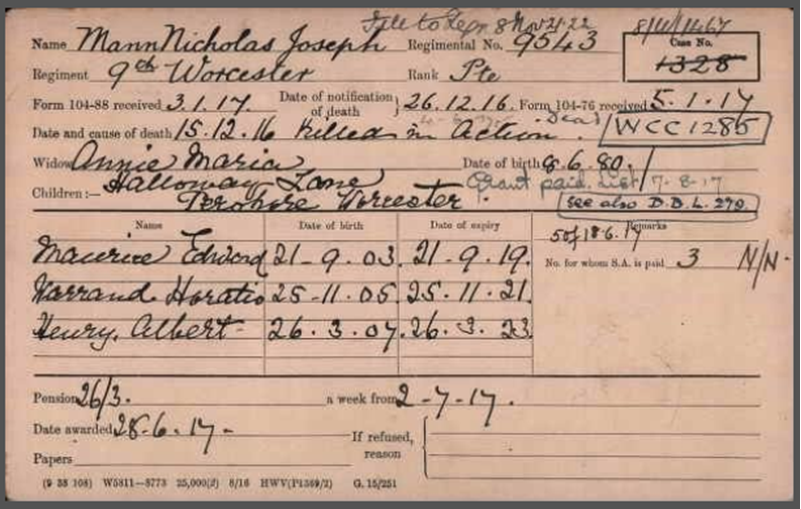 File to Regn 8 Nov 21.22
Name Mann Nicholas Joseph Regimental No. 9543
Case No.
1328
Regiment 9th Worcester Rank Pte
Form 104-88 received 3.1.17. Date of notification of death } 26.12.16. Form 104-76 received 5.1.17
Dead
Date and cause of death 15.12.16 Killed in Action. WCC1285
Widow Annie Maria Date of birth 8.6.80.
Children:— Halloway Lane Grant paid. List 7-8-17
Pershore Worcester. See also D.D.L. 279.
Name Date of birth Date of expiry Remarks
5/- of 18.6.17
Maurice Edward 21-9.03. 21-9.19. No. for whom S.A. is paid 3 N/N.
Warrand Horatio 25-11.05. 25.11.21.
Henry Albert 26.3.07. 26.3.23.
Pension 26/3. a week from 2-7-17.
Date awarded 28-6.17- If refused, reason
Papers
(9 38 108) W5811—8773 25,000(2) 8/16 HWV(P1369/2) G. 15/251